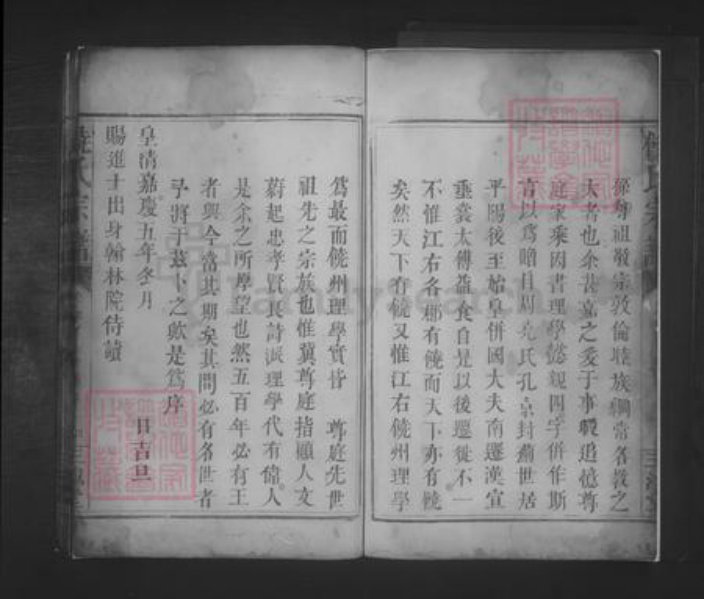 孫身祖敬宗敦倫睦族綱常名教之
夫者也余甚嘉之爰于事暇追憶尊
庭家乘因書理學懿親四字併作斯
言以為贈自周堯氏孔京封商世居
平陽後至始皇併國大夫南遷漢宣
垂裳太傅益食自是以後遷徙不一
不惟江右各郡有饒而天下亦有饒
矣然天下有饒又惟江右饒州理學
為最而饒州理學實皆 尊庭先世
祖先之宗族也惟冀尊庭指顧人文
蔚起忠孝賢良詩派理學代有偉人
是余之所摩望也然五百年必有王
者興今當其期矣其間必有名世者
乎將于茲卜之歟是為序
皇清嘉慶五年冬月 日吉旦
賜進士出身翰林院侍讀
饒氏宗譜
familysearch